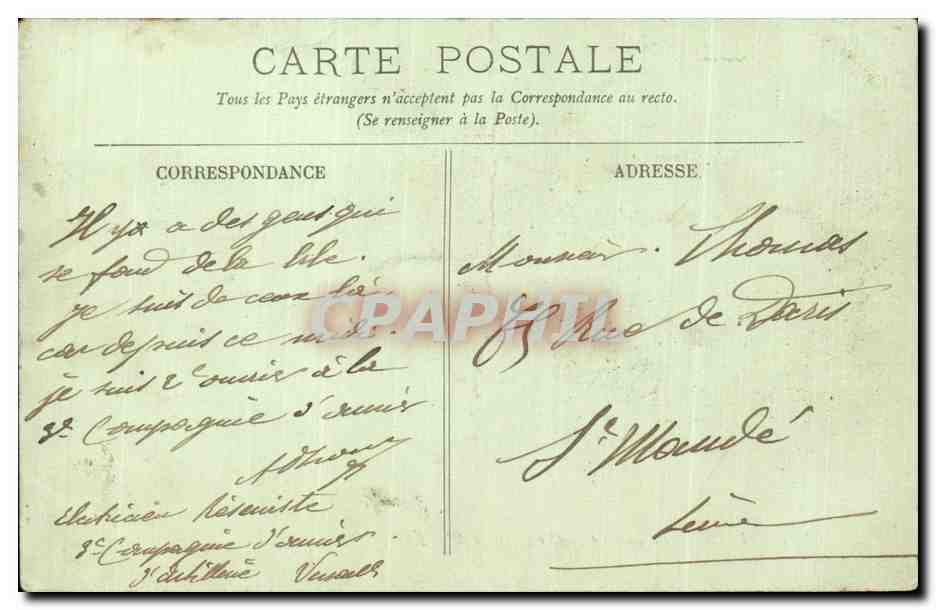 CARTE POSTALE
Tous les Pays étrangers n'acceptent pas la Correspondance au recto.
(Se renseigner à la Poste).
CORRESPONDANCE
Il y a des gens qui
se fond de la bile.
je suis de ceux là
car depuis ce midi
je suis 2e ouvrier à la
3e Compagnie d'ouvrier
Electricien Réserviste
3e Compagnie d'ouvriers
d'artillerie Versailles
ADRESSE
Monsieur Thomas
Rue de Paris
St Mandé
Seine
CPAPHIL